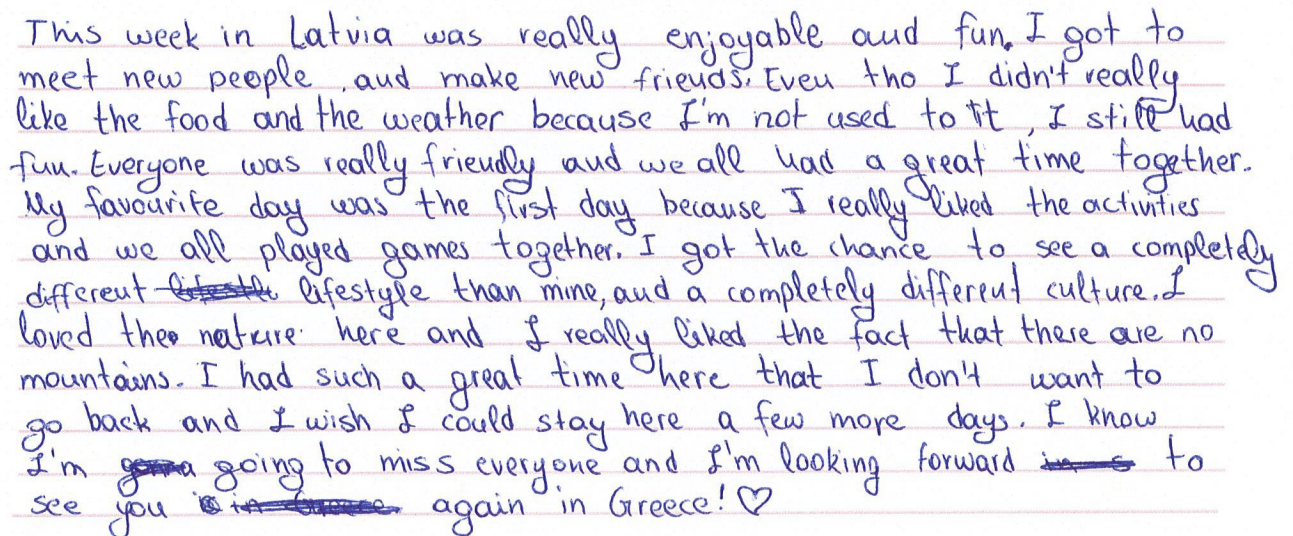 This week in Latvia was really enjoyable and fun. I got to
meet new people, and make new friends. Even tho I didn't really
like the food and the weather because I'm not used to it, I still had
fun. Everyone was really friendly and we all had a great time together.
My favourite day was the first day because I really liked the activities
and we all played games together. I got the chance to see a completely
different lifestyle than mine, and a completely different culture. I
loved the nature here and I really liked the fact that there are no
mountains. I had such a great time here that I don't want to
go back and I wish I could stay here a few more days. I know
I'm going to miss everyone and I'm looking forward to
see you again in Greece! ♡